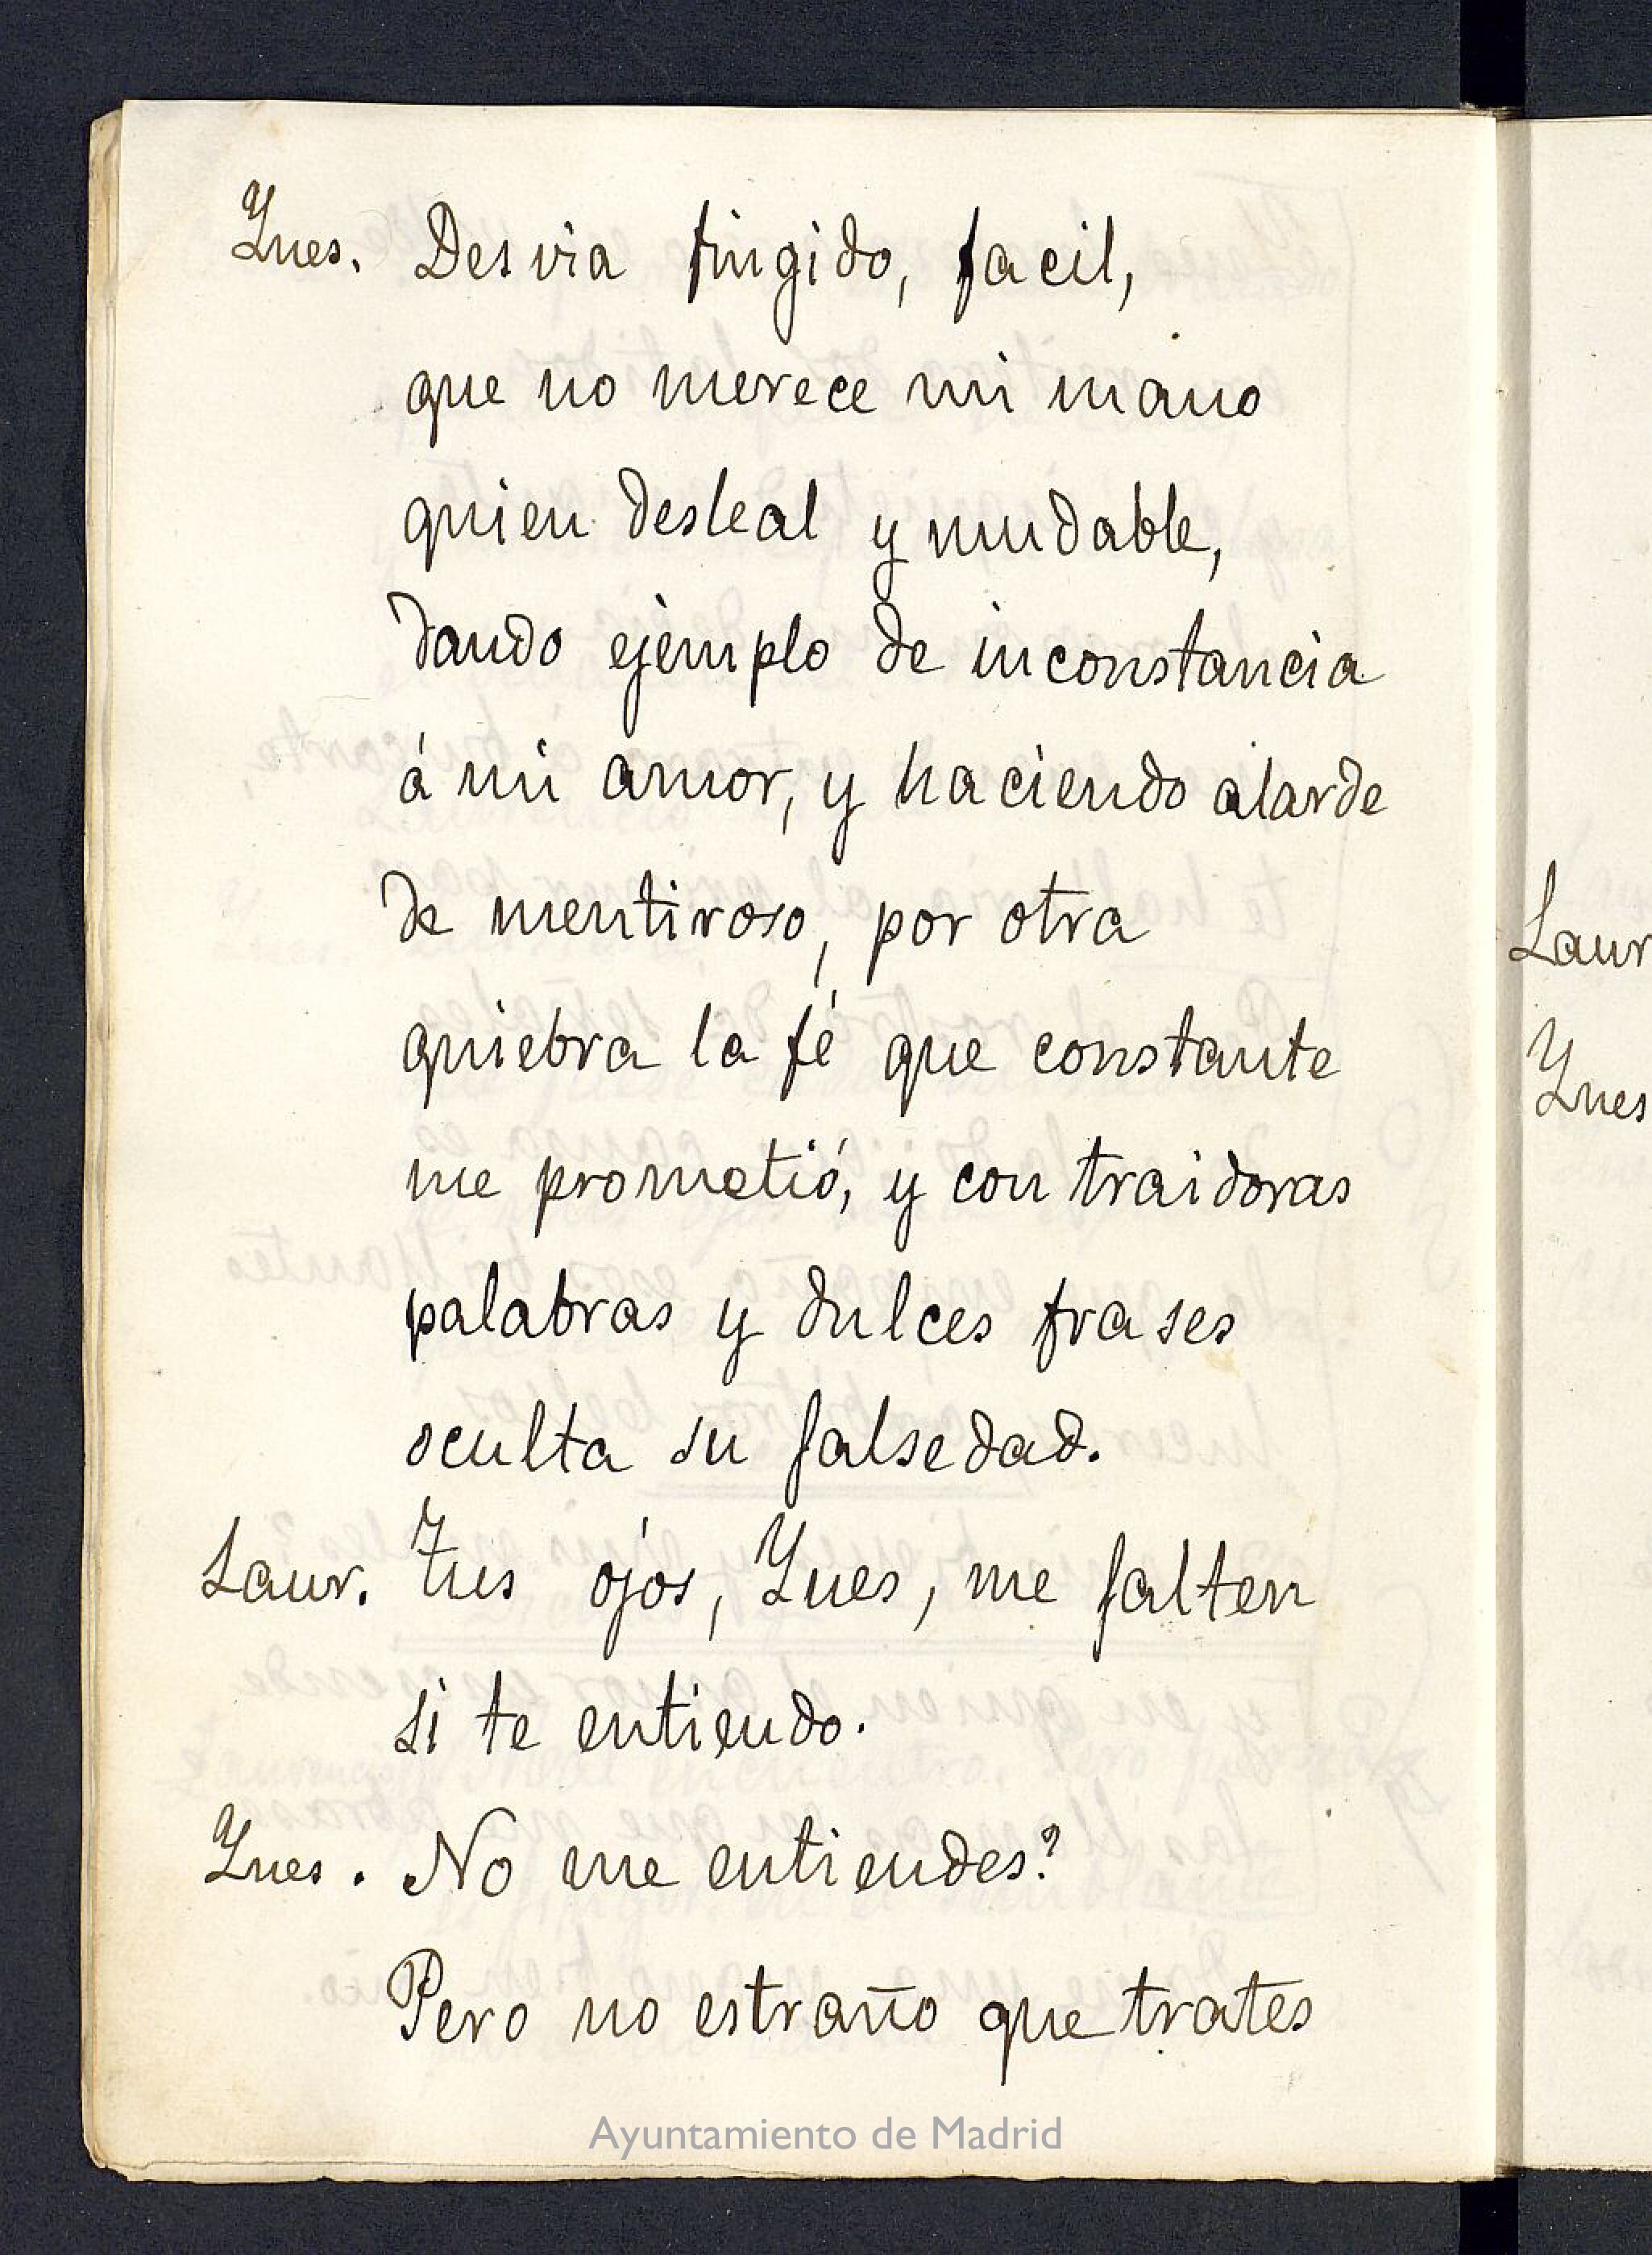 Ynes. Desvia fingido, facil,
que no merece mi mano
quien desleal y mudable,
dando ejemplo de inconstancia
á mi amor, y haciendo alarde
de mentiroso, por otra
quiebra la fé que constante
me prometió, y con traidoras
palabras y dulces frases
oculta su falsedad.
Laur. Tus ojos, Ynes, me falten
si te entiendo.
Ynes. No me entiendes?
Pero no estraño que trates
Laur
Ynes
Ayuntamiento de Madrid